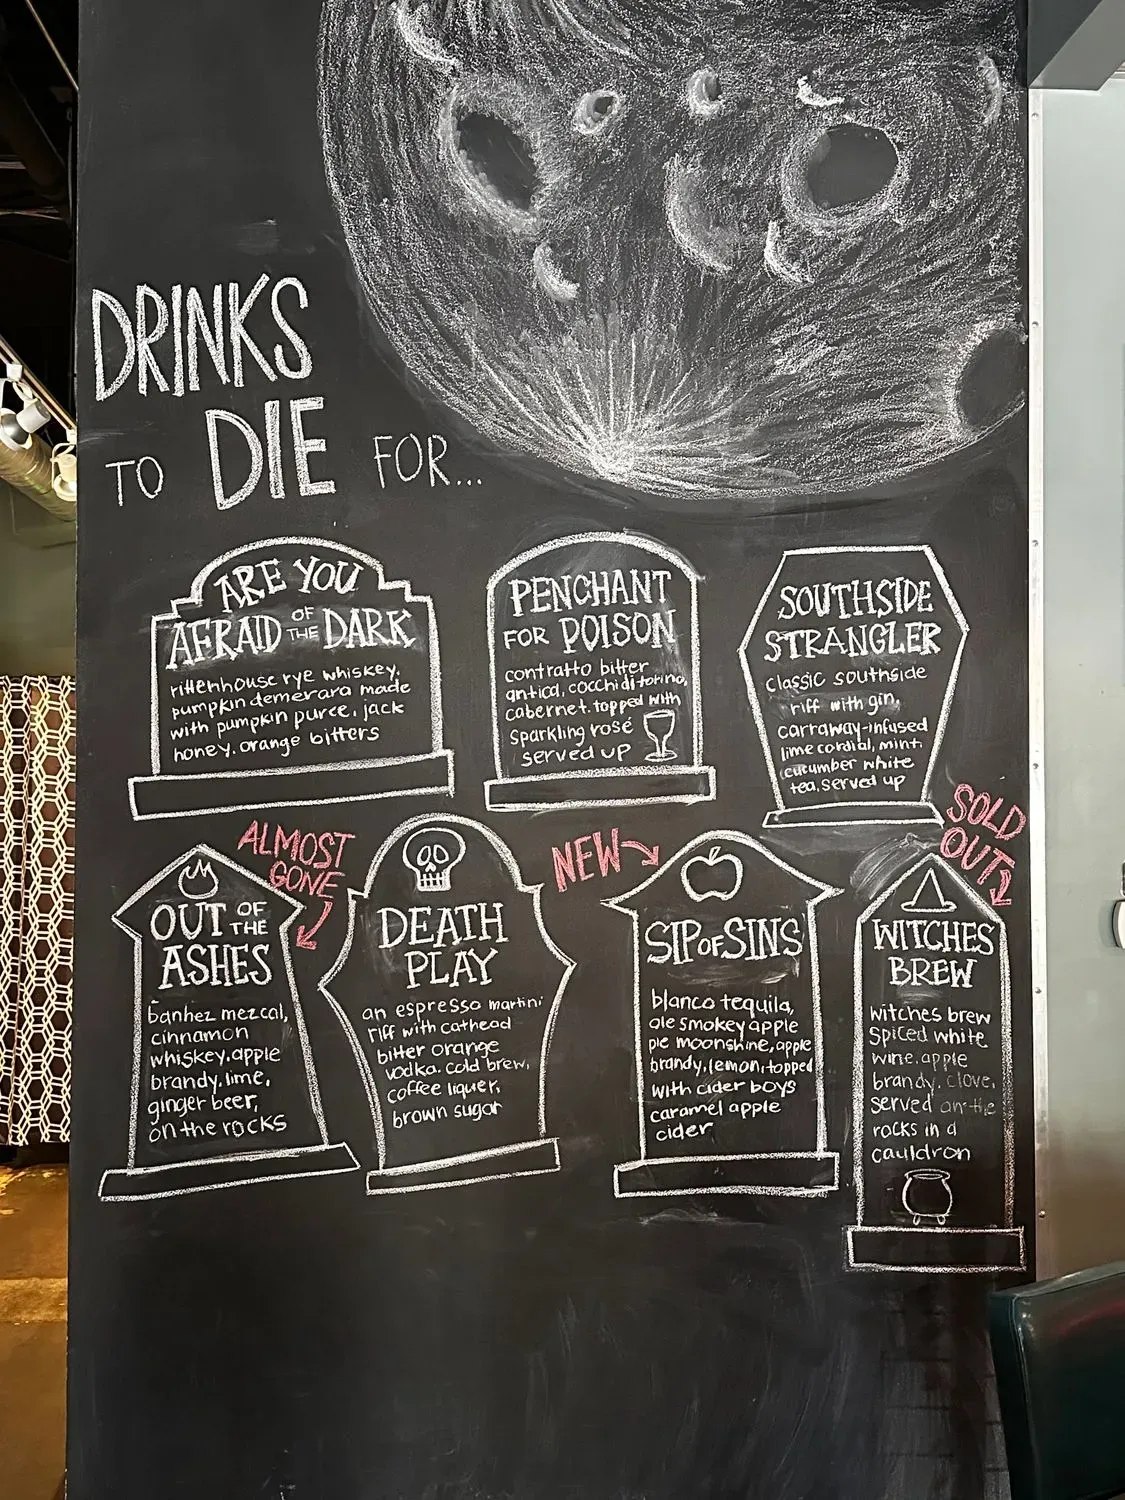 DRINKS
TO DIE FOR...
ARE YOU
AFRAID OF THE DARK
rittenhouse rye whiskey,
pumpkin demerara made
with pumpkin puree, jack
honey, orange bitters
PENCHANT
FOR POISON
contratto bitter
antica, cocchi di torino,
cabernet, topped with
sparkling rosé
served up
SOUTHSIDE
STRANGLER
classic southside
riff with gin,
carraway-infused
lime cordial, mint,
cucumber white
tea, served up
ALMOST
GONE
OUT OF THE
ASHES
banhez mezcal,
cinnamon
whiskey, apple
brandy, lime,
ginger beer,
on the rocks
DEATH
PLAY
an espresso martini
riff with cathead
bitter orange
vodka, cold brew,
coffee liquer,
brown sugar
NEW
SIP OF SINS
blanco tequila,
ole smokey apple
pie moonshine, apple
brandy, lemon, topped
with cider boys
caramel apple
cider
SOLD
OUT
WITCHES
BREW
witches brew
spiced white
wine, apple
brandy, clove,
served on the
rocks in a
cauldron